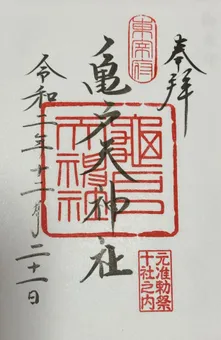 奉拝
東宰府
亀戸天神社
龜戸天神社
元准勅祭
十社之内
令和二年十二月二十一日